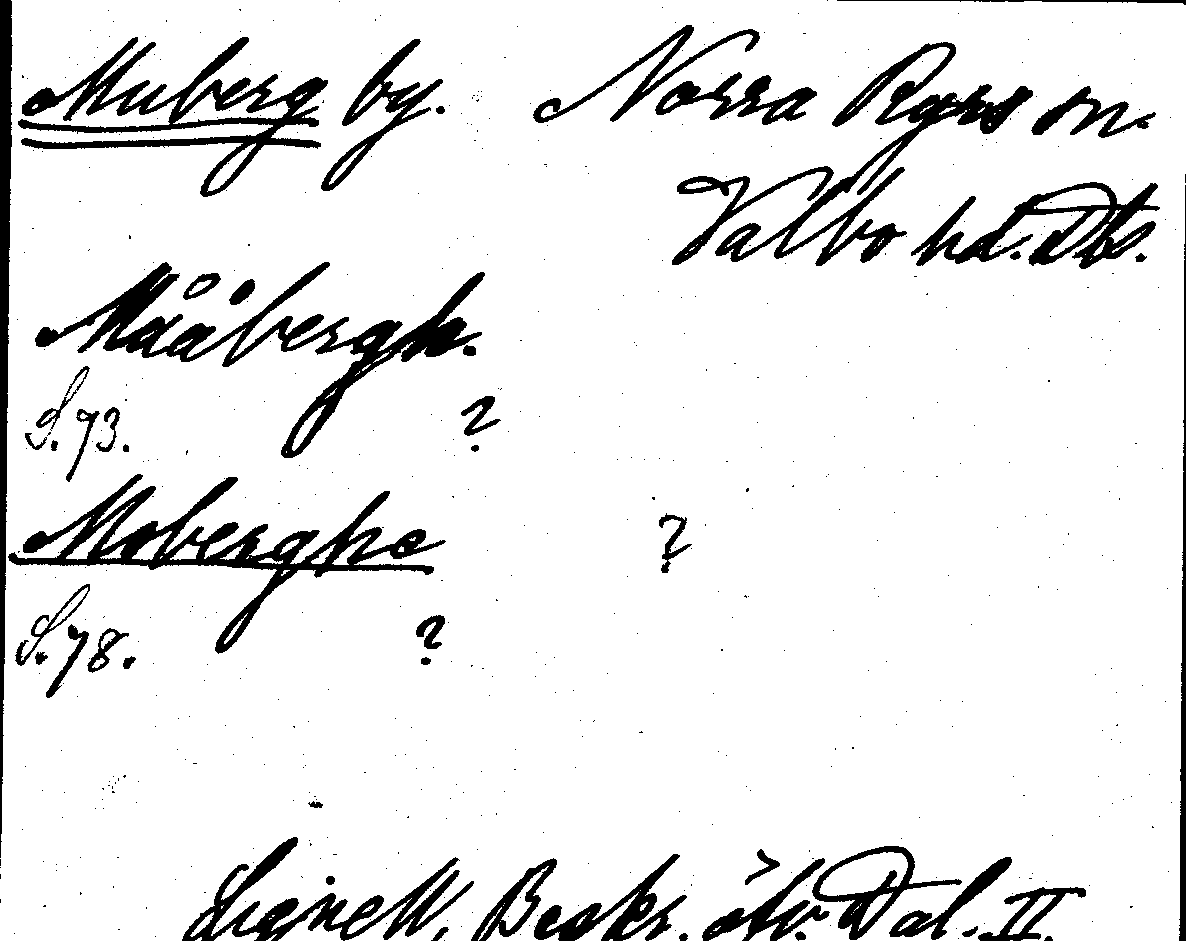 Muberg by. Norra Ryrs sn.
Valbo hd. Dls.
Mååbergh.
S. 73. ?
Moberghe ?
S. 78. ?
Lignell, Beskr. öfv. Dal. II.